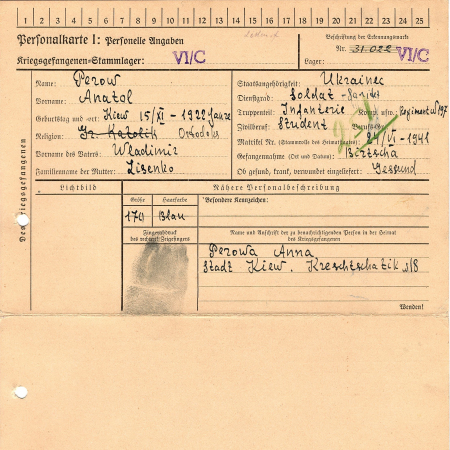 1 2 3 4 5 6 7 8 9 10 11 12 13 14 15 16 17 18 19 20 21 22 23 24 25
Personalkarte I: Personelle Angaben
Kriegsgefangenen-Stammlager: VI/C
Beschriftung der Erkennungsmarke
Nr. 31022
Lager: VI/C
Des Kriegsgefangenen
Name: Perow
Vorname: Anatol
Geburtstag und -ort: Kiew 15/XI - 1922
Religion: Gr. Katolik Ortodoks
Vorname des Vaters: Wladimir
Familienname der Mutter: Lisenko
Staatsangehörigkeit: Ukrainec
Dienstgrad: Soldat -
Truppenteil: Infanterie Komp. usw.: Regiment 197
Zivilberuf: Student Berufs-Gr.:
Matrikel Nr. (Stammrolle des Heimatstaates): 24/VI - 1941
Gefangennahme (Ort und Datum): Birtscha
Ob gesund, krank, verwundet eingeliefert: Gesund
Lichtbild
Nähere Personalbeschreibung
Größe Haarfarbe Besondere Kennzeichen:
170 Blau
Fingerabdruck
des rechten Zeigefingers
Name und Anschrift der zu benachrichtigenden Person in der Heimat
des Kriegsgefangenen
Perowa Anna
Stadt Kiew. Kreschtschatik 1/8
Wenden!